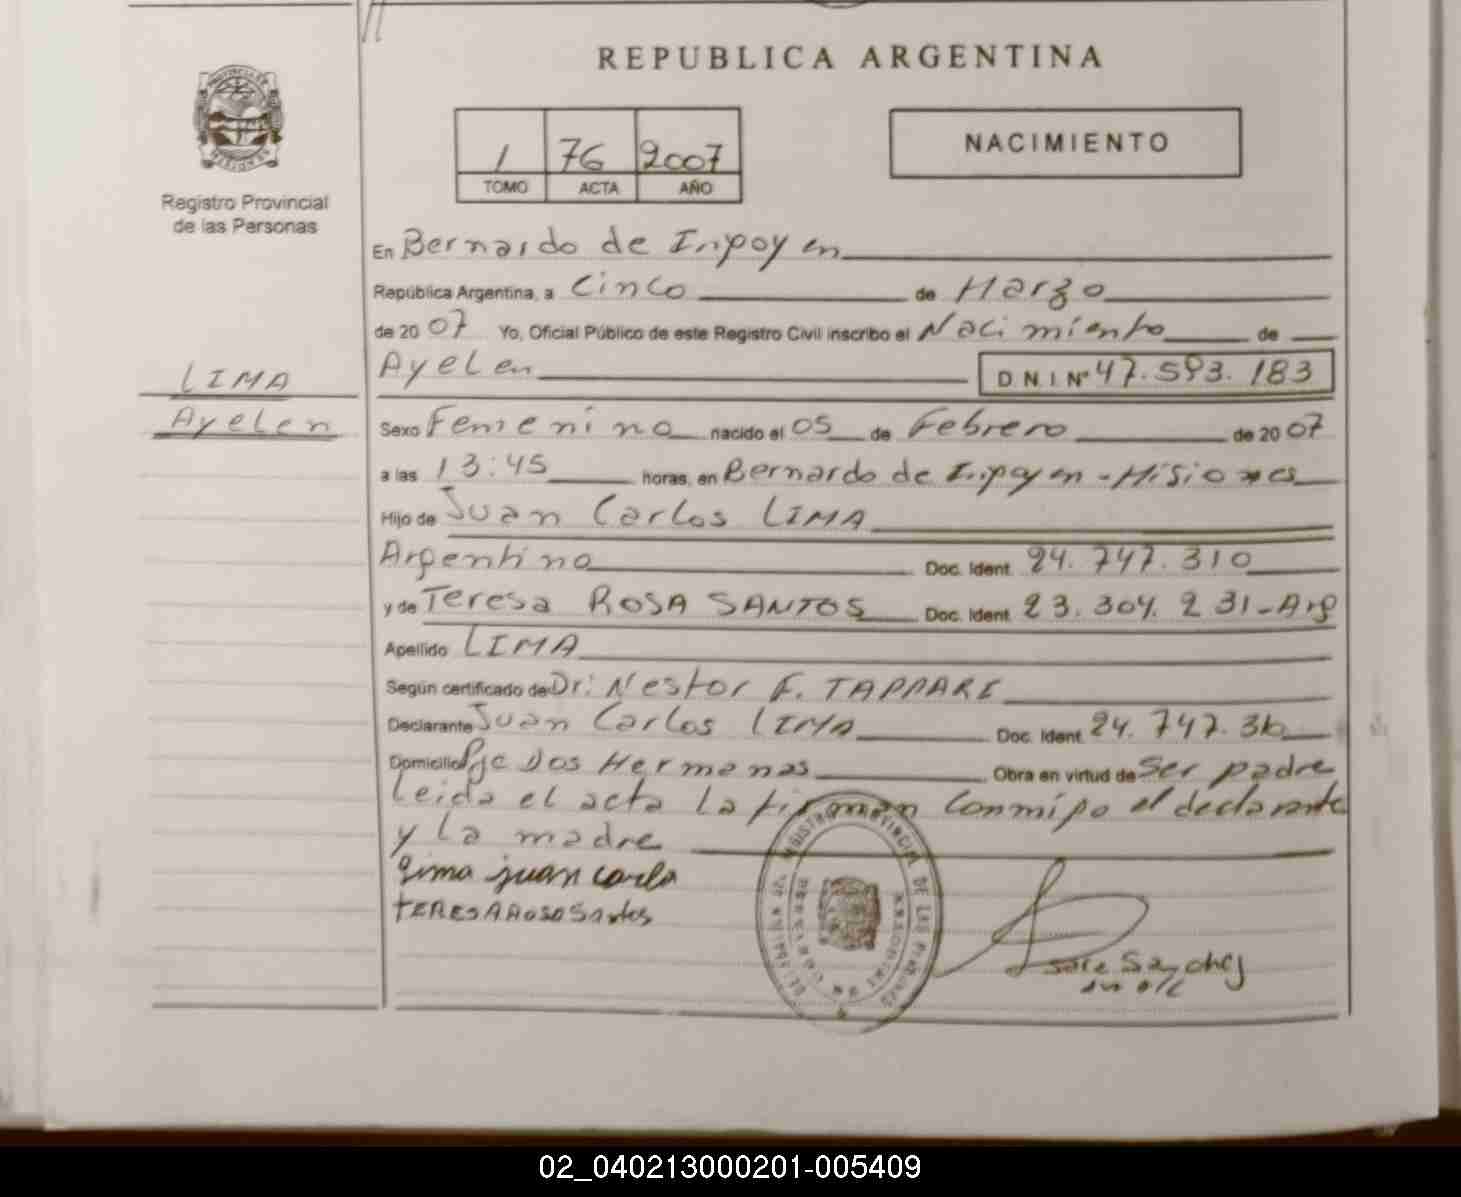 REPUBLICA ARGENTINA
1 76 2007
TOMO ACTA AÑO
NACIMIENTO
PROVINCIA DE MISIONES
Registro Provincial
de las Personas
En Bernardo de Irigoyen
República Argentina, a Cinco de Marzo
de 2007 Yo, Oficial Público de este Registro Civil inscribo el Nacimiento de
LIMA
Ayelen
Ayelen D N. I. Nº 47.593.183
Sexo Femenino nacido el 05 de Febrero de 2007
a las 13:45 horas, en Bernardo de Irigoyen - Misiones
Hijo de Juan Carlos LIMA
Argentino Doc. Ident. 24.747.310
y de Teresa ROSA SANTOS Doc. Ident. 23.304.231-Arg
Apellido LIMA
Según certificado de Dr: Nestor F. TAPPARI
Declarante Juan Carlos LIMA Doc. Ident. 24.747.310
Domicilio Pje Dos Hermanas Obra en virtud de Ser padre
Leida el acta La firman Conmigo el declarante
y La madre
Lima juan carlo
TERESA ROSA Santos
REGISTRO PROVINCIAL DE LAS PERSONAS
Sanchez
02_040213000201-005409